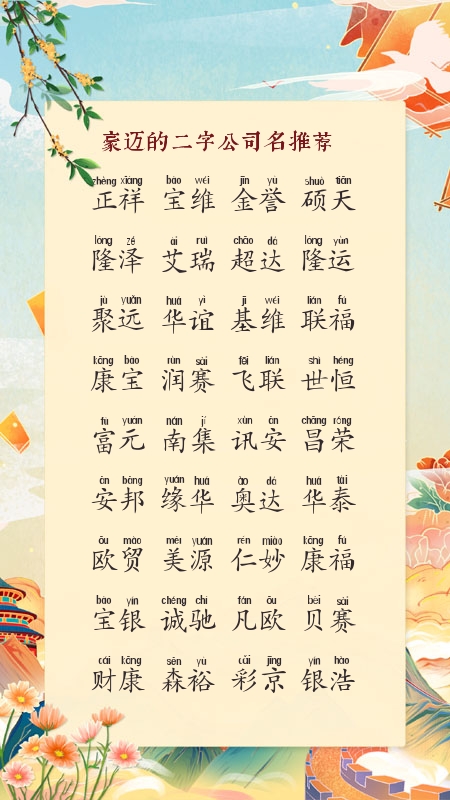 豪迈的二字公司名推荐
zhèng xiáng bǎo wéi jīn yù shuò tiān
正祥 宝维 金誉 硕天
lóng zé ài ruì chāo dá lóng yùn
隆泽 艾瑞 超达 隆运
jù yuǎn huá yì jī wéi lián fú
聚远 华谊 基维 联福
kāng bǎo rùn sài fēi lián shì héng
康宝 润赛 飞联 世恒
fù yuán nán jí xùn ān chāng róng
富元 南集 讯安 昌荣
ān bāng yuán huá ào dá huá tài
安邦 缘华 奥达 华泰
ōu mào měi yuán rén miào kāng fú
欧贸 美源 仁妙 康福
bǎo yín chéng chí fán ōu bèi sài
宝银 诚驰 凡欧 贝赛
cái kāng sēn yù cǎi jīng yín hào
财康 森裕 彩京 银浩